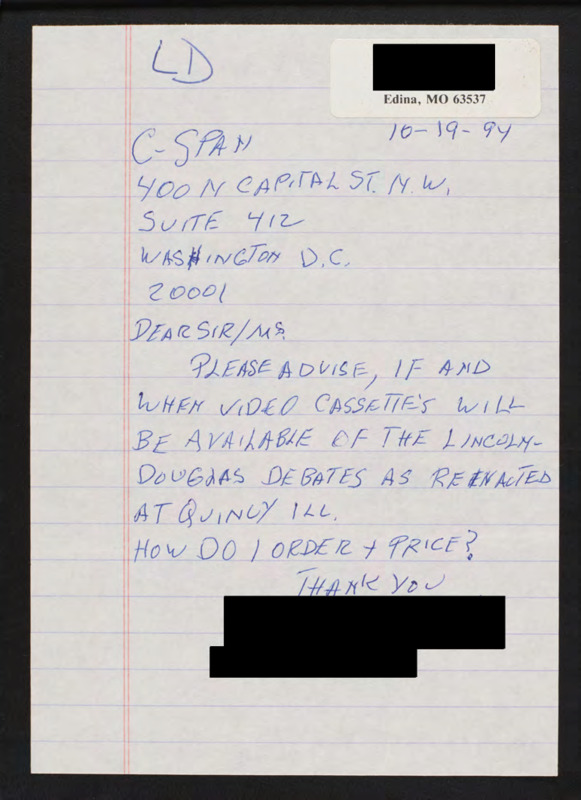 LD
Edina, MO 63537
10-19-94
C-SPAN
400 N CAPITAL ST. N.W.
SUITE 412
WASHINGTON D.C.
20001
DEAR SIR/MS.
PLEASE ADVISE, IF AND
WHEN VIDEO CASSETTE'S WILL
BE AVAILABLE OF THE LINCOLN-
DOUGLAS DEBATES AS REENACTED
AT QUINCY ILL.
HOW DO I ORDER + PRICE?
THANK YOU